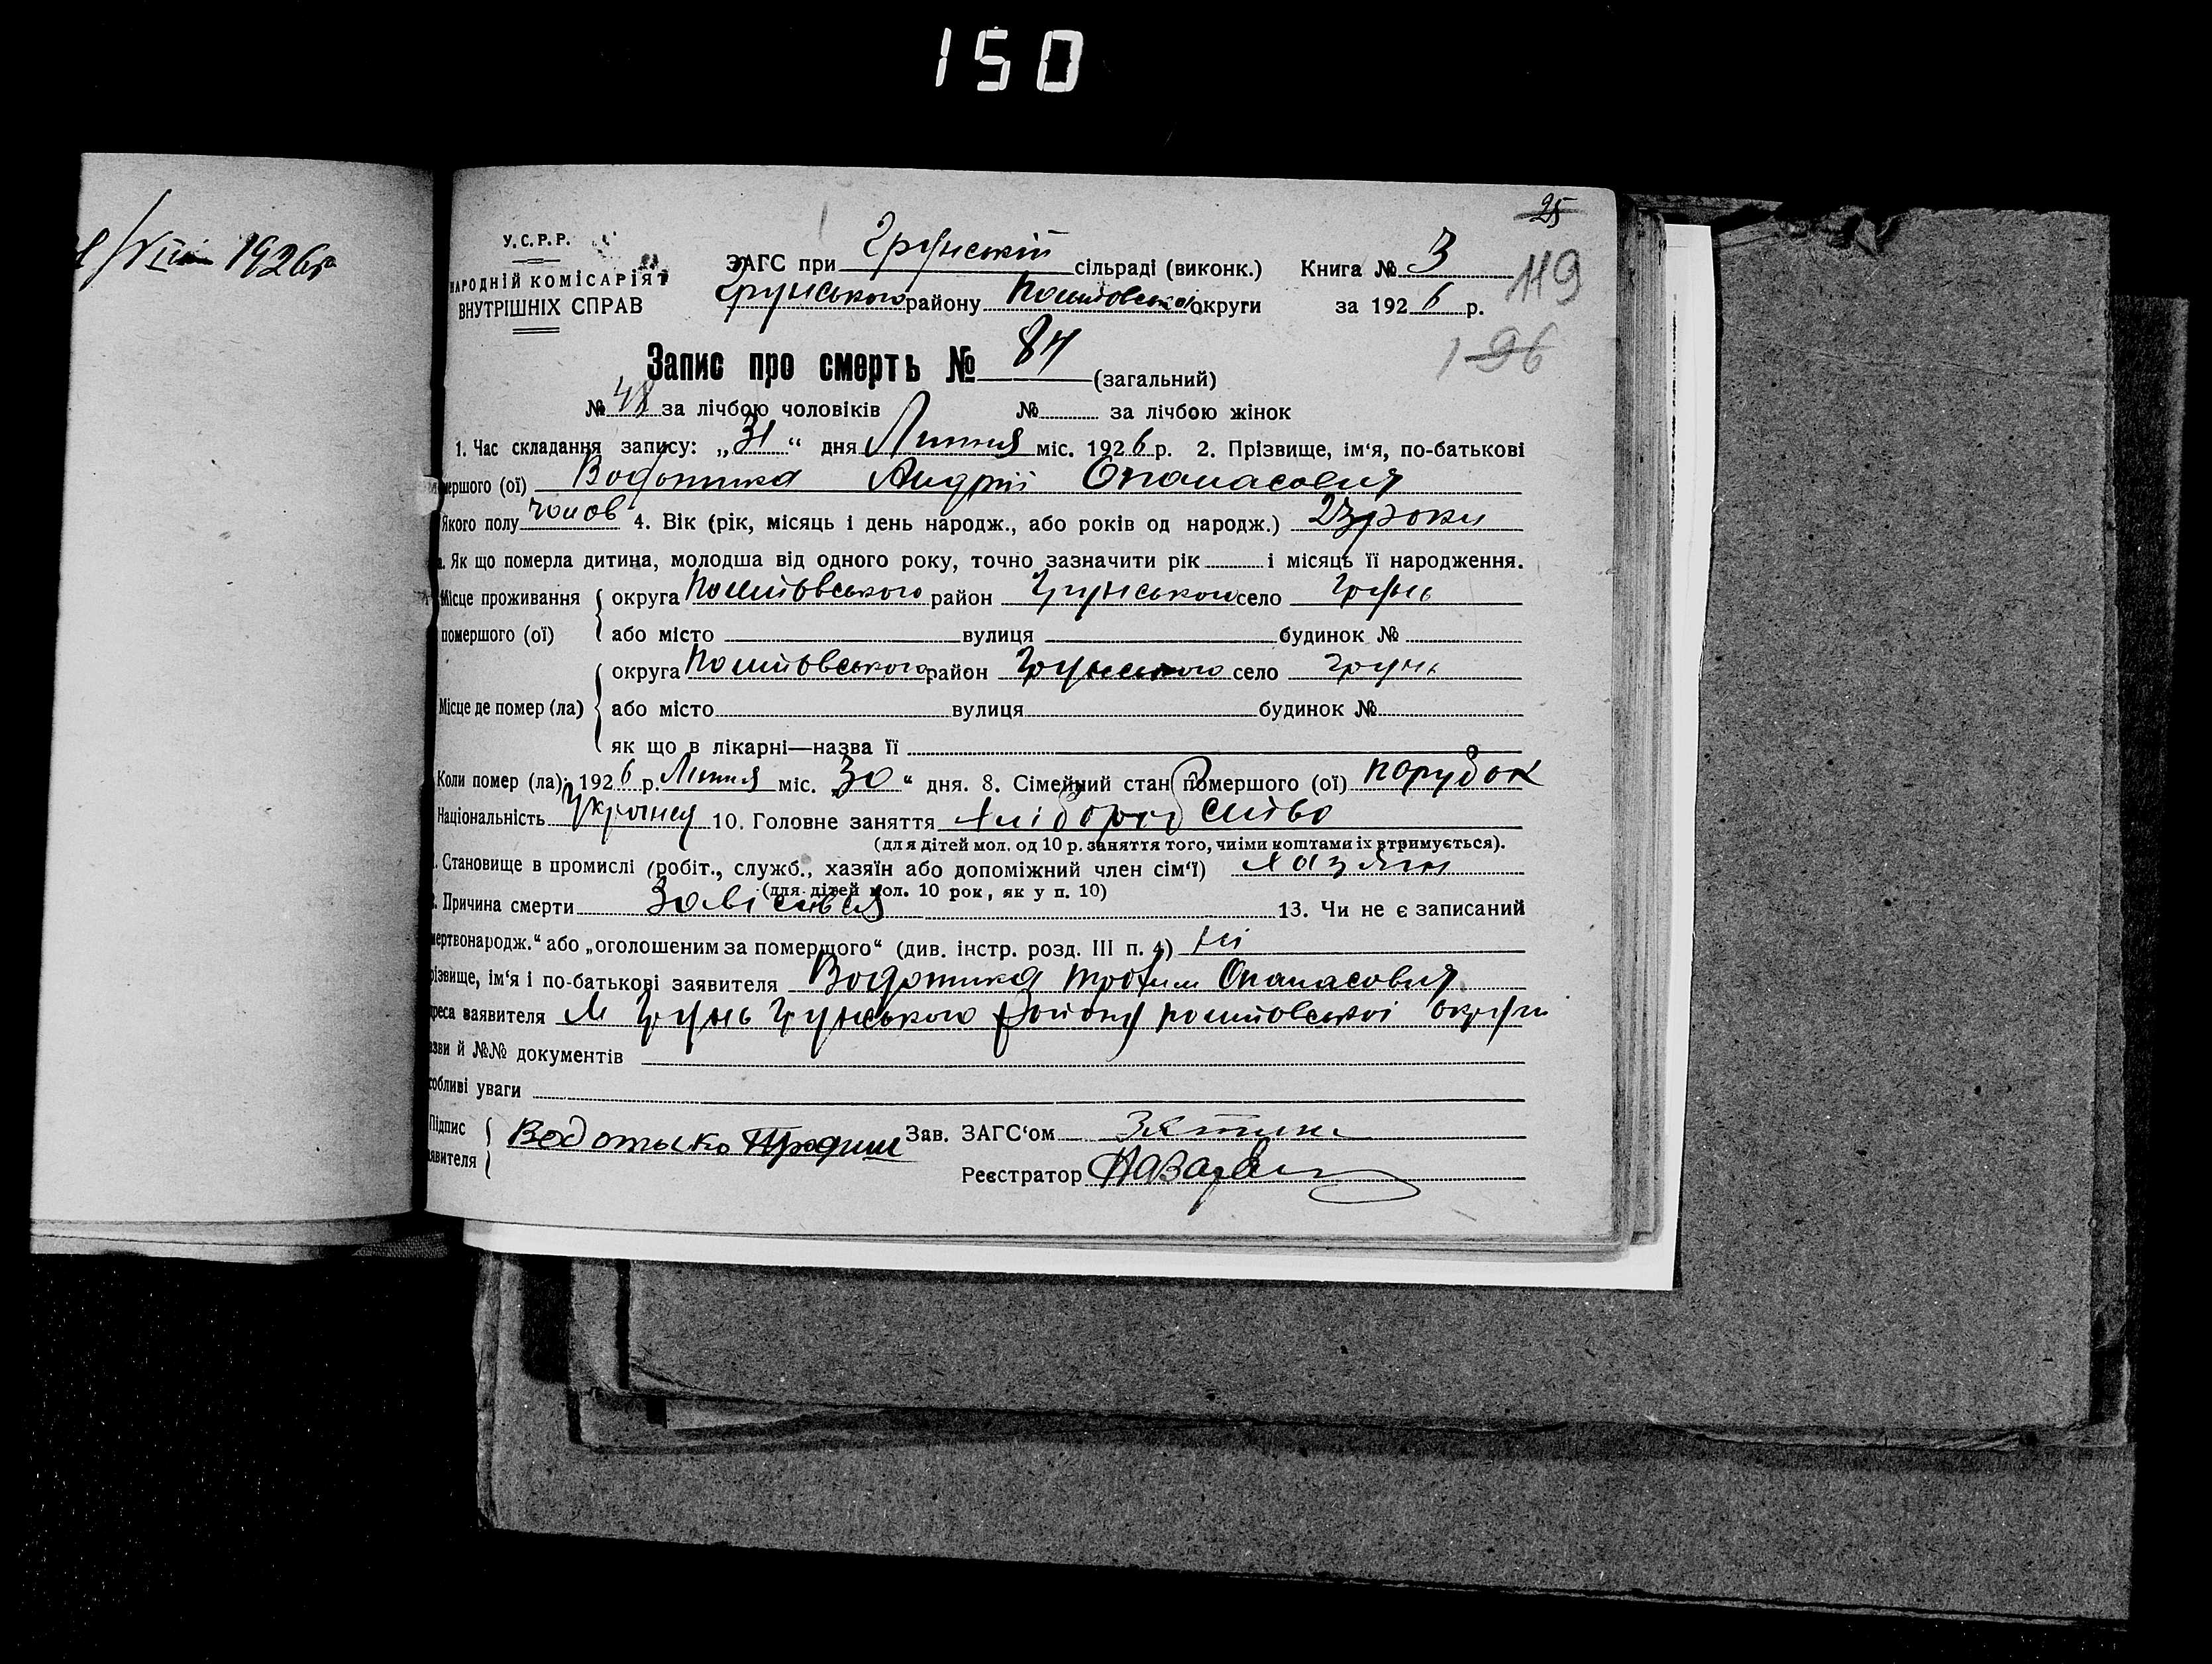 150
25
1926 р
У.С.Р.Р.
НАРОДНІЙ КОМІСАРІЯТ
ВНУТРІШНІХ СПРАВ
ЗАГС при Грунській сільраді (виконк.) Книга № 3
119
Грунського району Полтавської округи за 1926 р.
196
Запис про смерть № 84 (загальний)
№ 48 за лічбою чоловіків № за лічбою жінок
1. Час складання запису: „31“ дня Липня міс. 1926 р. 2. Прізвище, ім‘я, по-батькові
мершого (ої) Водотика Андрій Опанасович
Якого полу чолов 4. Вік (рік, місяць і день народж., або років од народж.) 23 роки
Як що померла дитина, молодша від одного року, точно зазначити рік і місяць її народження.
Місце проживання округа район Грунського село Грунь
помершого (ої) або місто вулиця будинок №
округа район Грунського село Грунь
Місце де помер (ла) або місто вулиця будинок №
як що в лікарні—назва її
Коли помер (ла): 1926 р. Липня міс. „30“ дня. 8. Сімейний стан помершого (ої) парубок
Національність Українец 10. Головне заняття хліборобство
(для дітей мол. од 10 р. заняття того, чиїми коштами їх втримується).
Становище в промислі (робіт., служб., хазяїн або допоміжний член сім‘ї) хазяїн
(для дітей мол. 10 рок, як у п. 10)
Причина смерти 13. Чи не є записаний
мертвонародж.“ або „оголошеним за помершого“ (див. інстр. розд. III п. 4) ні
різвище, ім‘я і по-батькові заявителя Водотика Трофим Опанасович
дреса заявителя М Грунь Грунського району округи
азви й №№ документів
собливі уваги
Підпис Водотыка Трофим Зав. ЗАГС‘ом
аявителя Реєстратор